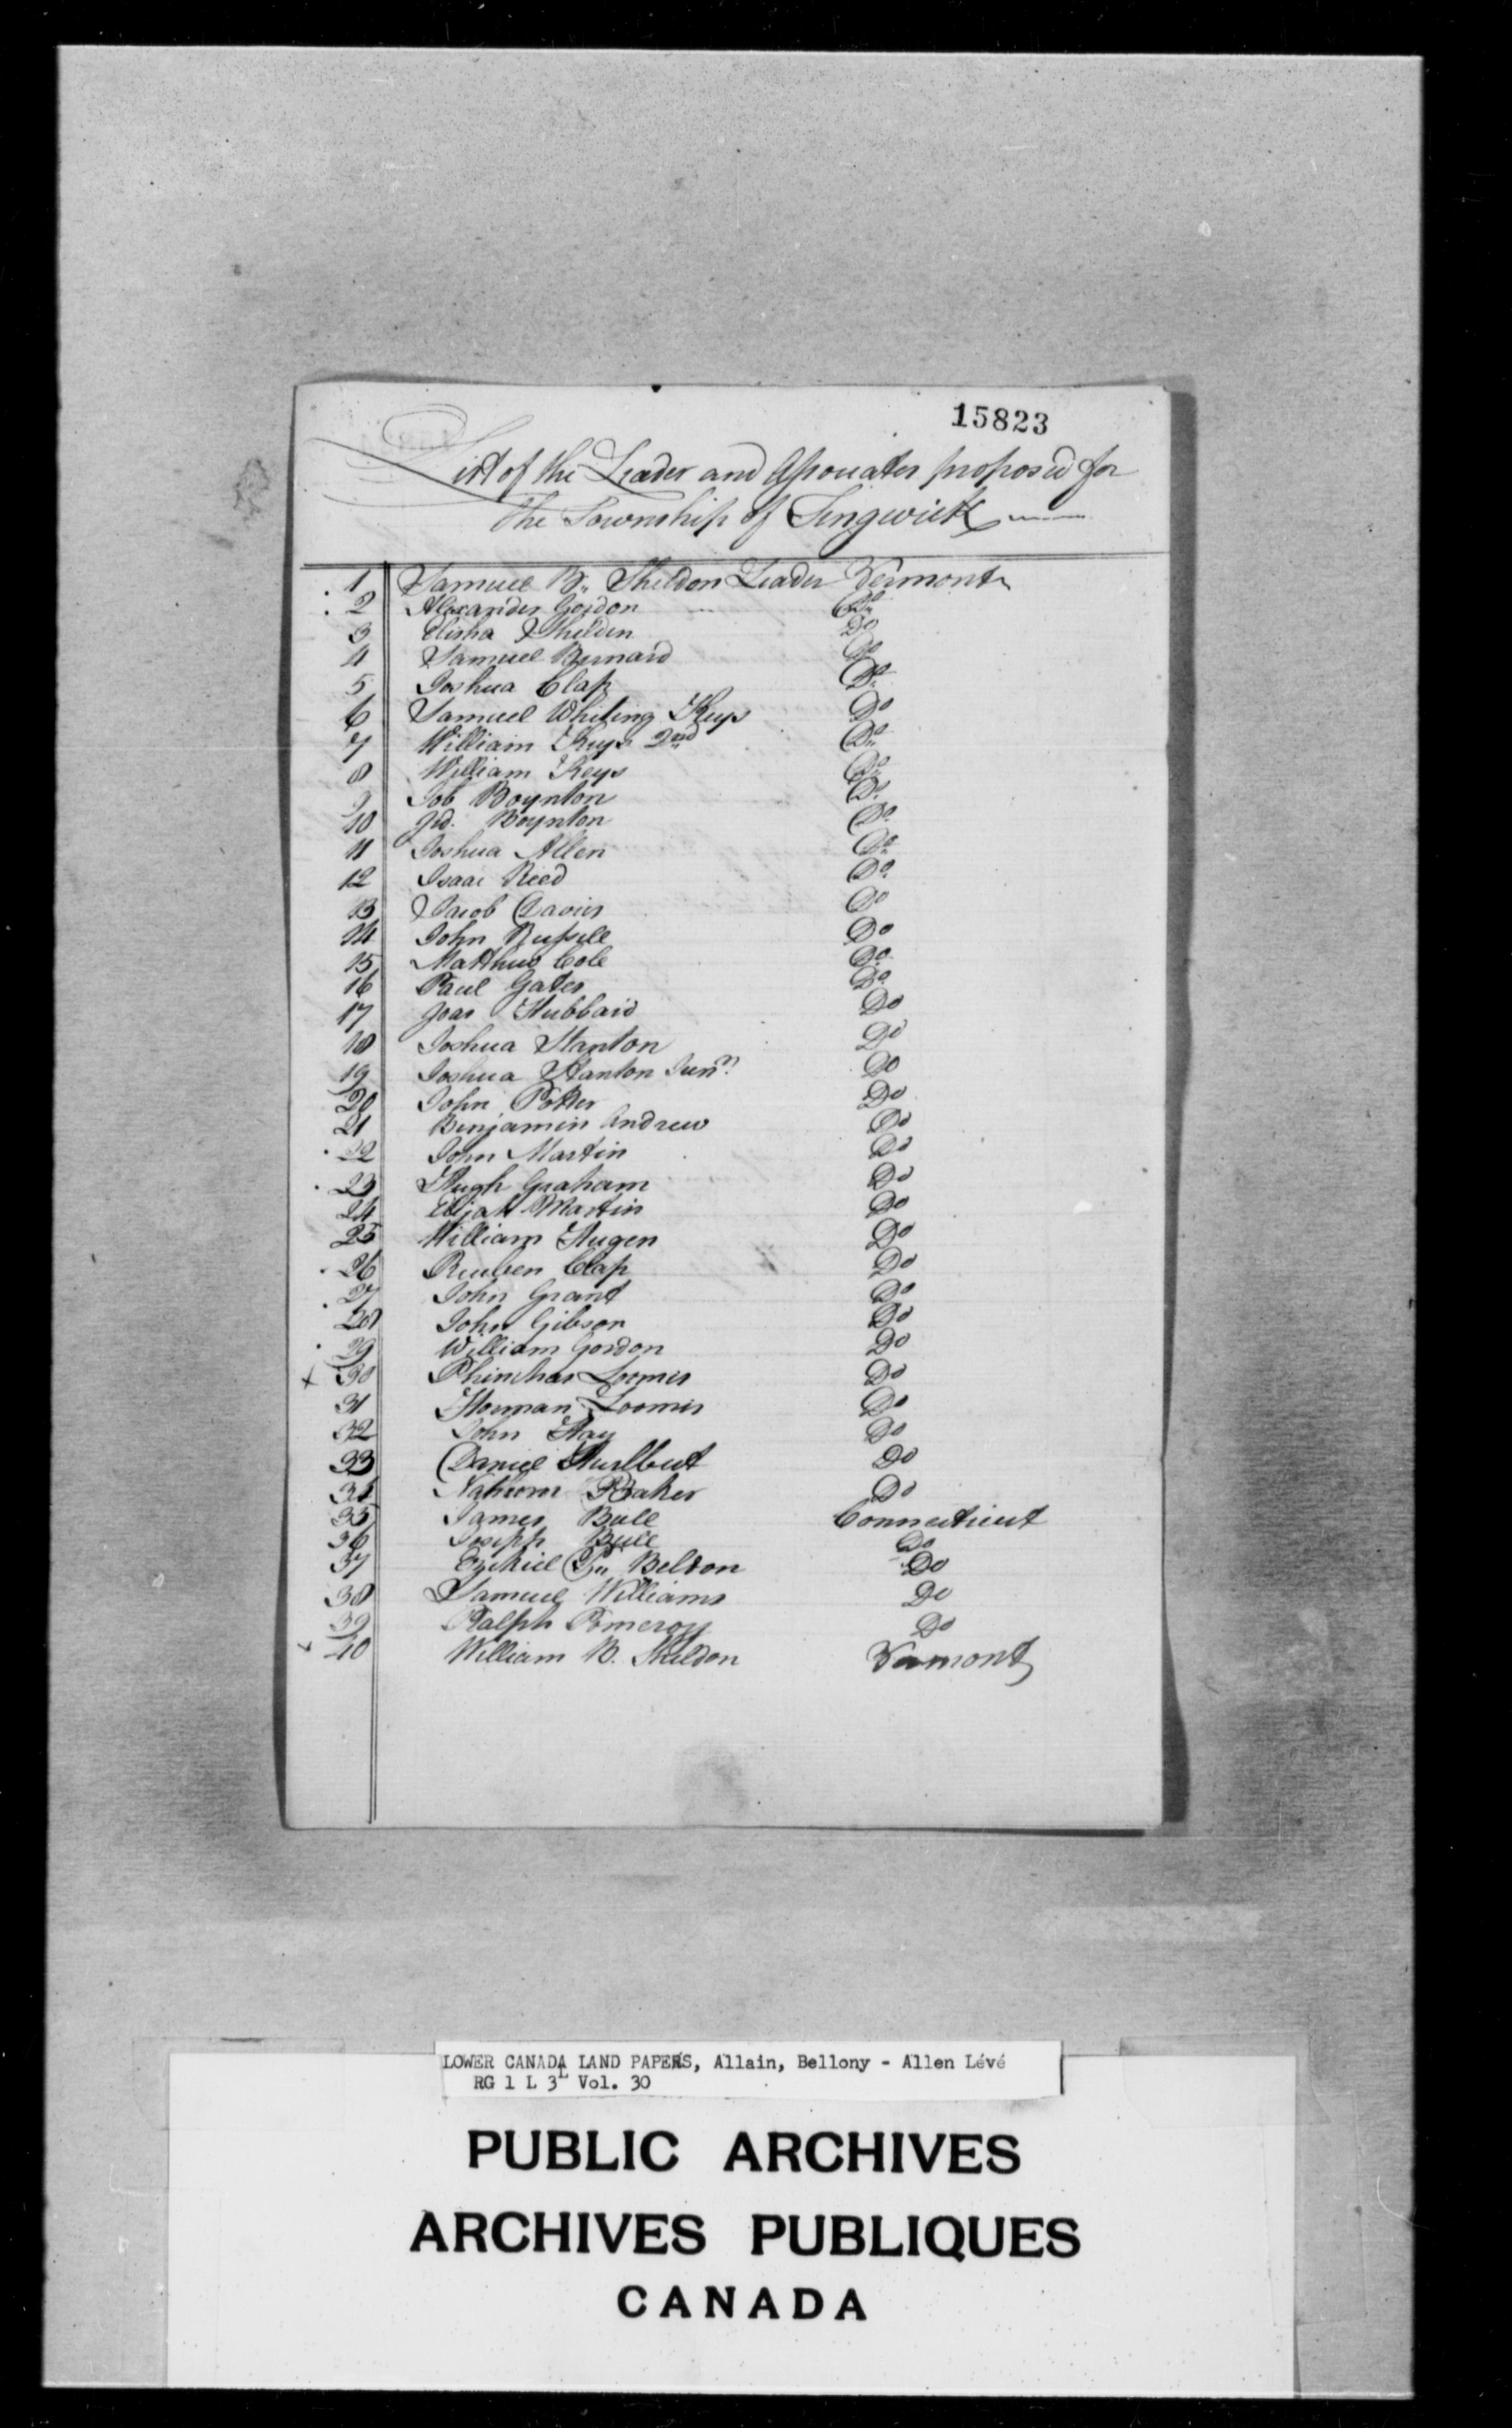 15823
List of the Leader and Associates proposed for
the Township of Lingwick
1 Samuel B. Sheldon Leader Vermont
2 Alexander Gordon Do
3 Elisha Sheldin Do
4 Samuel Bernard Do
5 Joshua Clap Do
6 Samuel Whiting Keys Do
7 William Keys 2nd Do
8 William Keys Do
9 Job Boynton Do
10 Jed. Boynton Do
11 Joshua Allen Do
12 Isaac Reed Do
13 Jacob Davies Do
14 John Russell Do
15 Matthew Cole Do
16 Paul Gates Do
17 Joas Hubbard Do
18 Joshua Stanton Do
19 Joshua Stanton Junr. Do
20 John Potter Do
21 Benjamin Andrew Do
22 John Martin Do
23 Hugh Graham Do
24 Elijah Martin Do
25 William Hugen Do
26 Reuben Clap Do
27 John Grant Do
28 John Gibson Do
29 William Gordon Do
x 30 Phinehas Loomis Do
31 Horman Loomis Do
32 John Hay Do
33 Daniel Hurlbut Do
34 Nahum Baker Do
35 James Bull Connecticut
36 Joseph Bull Do
37 Ezekiel P. Beldon Do
38 Samuel Williams Do
39 Ralph Pomeroy Do
x 40 William B. Sheldon Vermont
LOWER CANADA LAND PAPERS, Allain, Bellony - Allen Lévé
RG 1 L 3L Vol. 30
PUBLIC ARCHIVES
ARCHIVES PUBLIQUES
CANADA